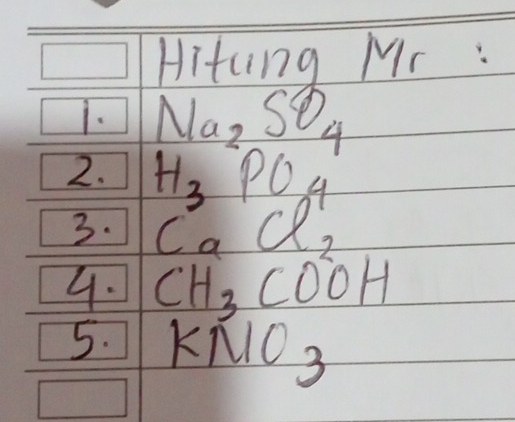 Hitung Mr :
1. Na₂SO₄
2. H₃PO₄
3. CaCl₂
4. CH₃COOH
5. KNO₃